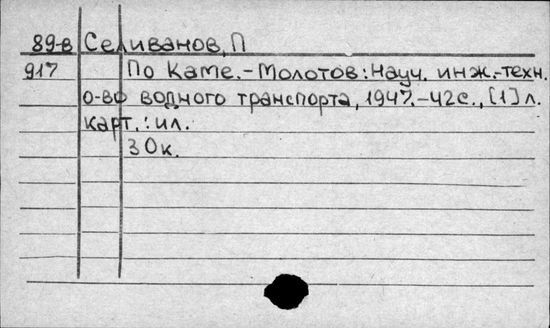 89-в Селиванов, П
917 По Каме.-Молотов: Науч. инж.-техн.
о-во водного транспорта, 1947.-42с., [1] л.
карт.: ил.
30к.